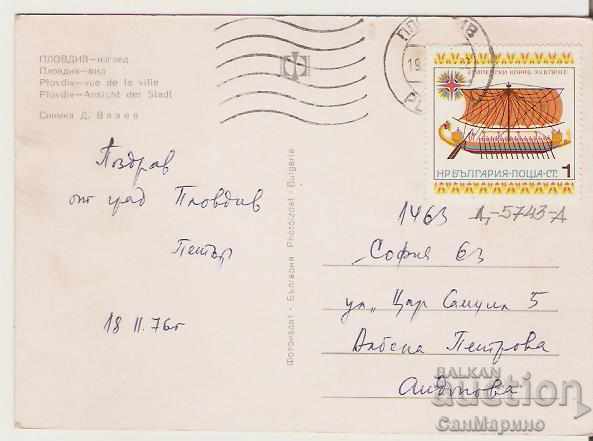 ПЛОВДИВ—изглед
Пловдив—вид
Plovdiv—vue de la ville
Plovdiv—Ansicht der Stadt
Снимка Д. Вязев
Поздрав
от град Пловдив
Петър
18 II. 76г
Фотоиздат · България Photoizdat · Bulgarie
ПЛО ИВ
19
PL
ЕГИПЕТСКИ КОРАБ
НР БЪЛГАРИЯ·ПОЩА·СТ. 1
1463 Д-5743-А
София 63
ул. Цар Самуил 5
Албена Петрова
Андонова
BALKAN
auction
СанМарино